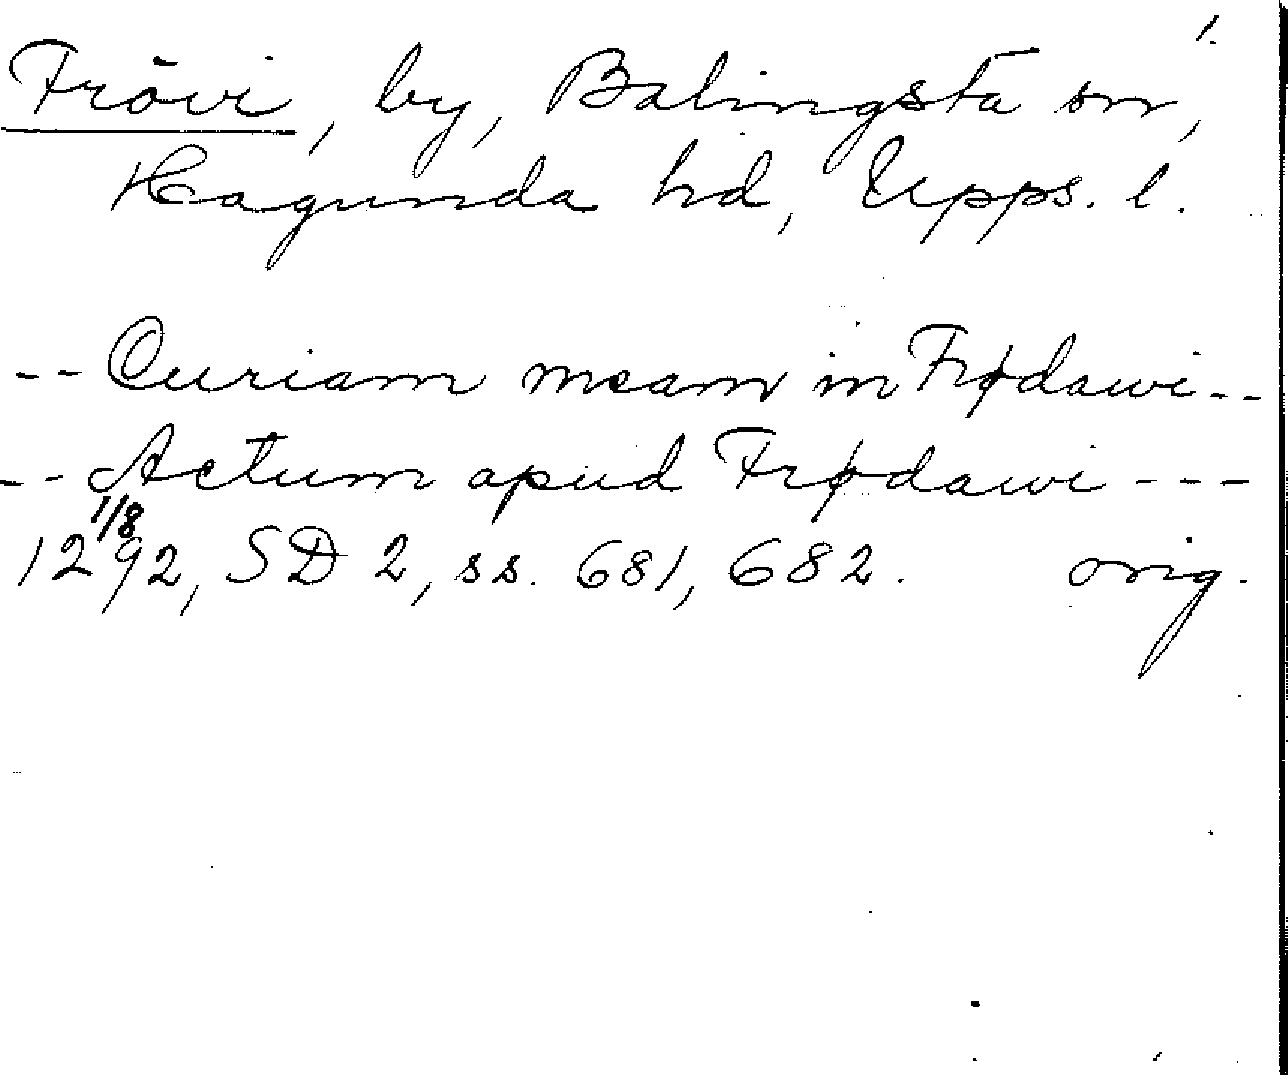 1.
Frövi, by, Balingsta sn,
Hagunda hd, Upps. l.
-- Curiam meam in Frødawi--
-- Actum apud Frødawi ---
1/8
1292, SD 2, ss. 681, 682. orig.